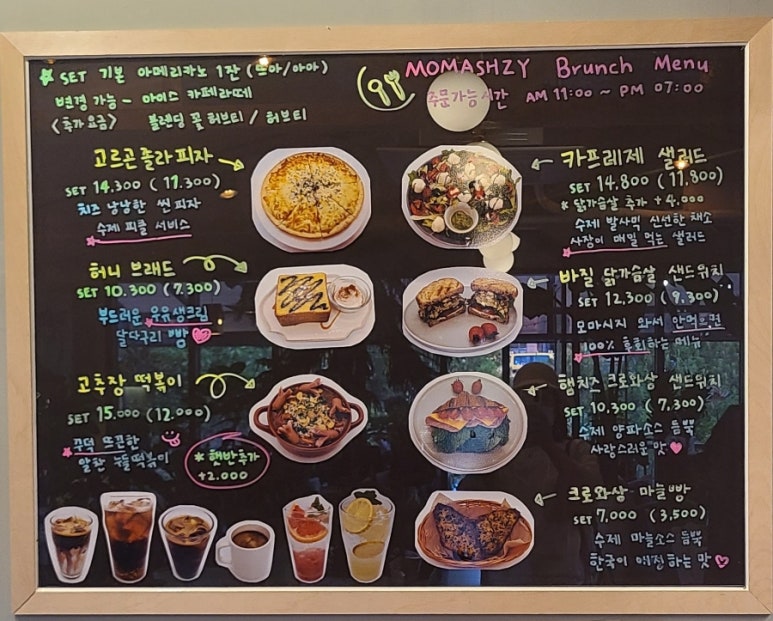 ☆ SET 기본 아메리카노 1잔 (뜨아/아아)
변경 가능 - 아이스 카페라떼
<추가요금> 블렌딩 꽃 허브티 / 허브티
MOMASHZY Brunch Menu
주문가능시간 AM 11:00 ~ PM 07:00
고르곤졸라 피자
SET 14,300 (11,300)
치즈 낭낭한 씬 피자
수제 피클 서비스
허니 브래드
SET 10.300 (7.300)
부드러운 우유생크림
달다구리 빵
고추장 떡볶이
SET 15.000 (12.000)
쭈덕 뜨끈한
알찬 누들떡볶이
* 햇반추가
+2.000
카프레제 샐러드
SET 14.800 (11,800)
* 닭가슴살 추가 +4,000
수제 발사믹 신선한 채소
사장이 매일 먹는 샐러드
바질 닭가슴살 샌드위치
SET 12.300 (9.300)
모마시지 와서 안먹으면
100% 후회하는 메뉴!
햄치즈 크로와상 샌드위치
SET 10,300 (7,300)
수제 양파소스 듬뿍
사랑스러운 맛
크로와상 마늘빵
SET 7,000 (3,500)
수제 마늘소스 듬뿍
한국이 인정하는 맛